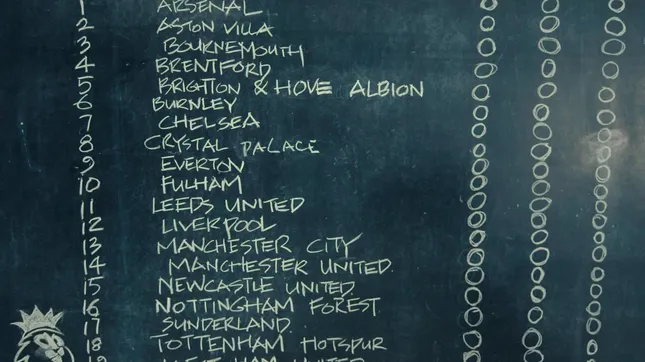 1 ARSENAL 0 0 0
2 ASTON VILLA 0 0 0
3 BOURNEMOUTH 0 0 0
4 BRENTFORD 0 0 0
5 BRIGHTON & HOVE ALBION 0 0 0
6 BURNLEY 0 0 0
7 CHELSEA 0 0 0
8 CRYSTAL PALACE 0 0 0
9 EVERTON 0 0 0
10 FULHAM 0 0 0
11 LEEDS UNITED 0 0 0
12 LIVERPOOL 0 0 0
13 MANCHESTER CITY 0 0 0
14 MANCHESTER UNITED 0 0 0
15 NEWCASTLE UNITED 0 0 0
16 NOTTINGHAM FOREST 0 0 0
17 SUNDERLAND 0 0 0
18 TOTTENHAM HOTSPUR 0 0 0
19 WEST HAM UNITED